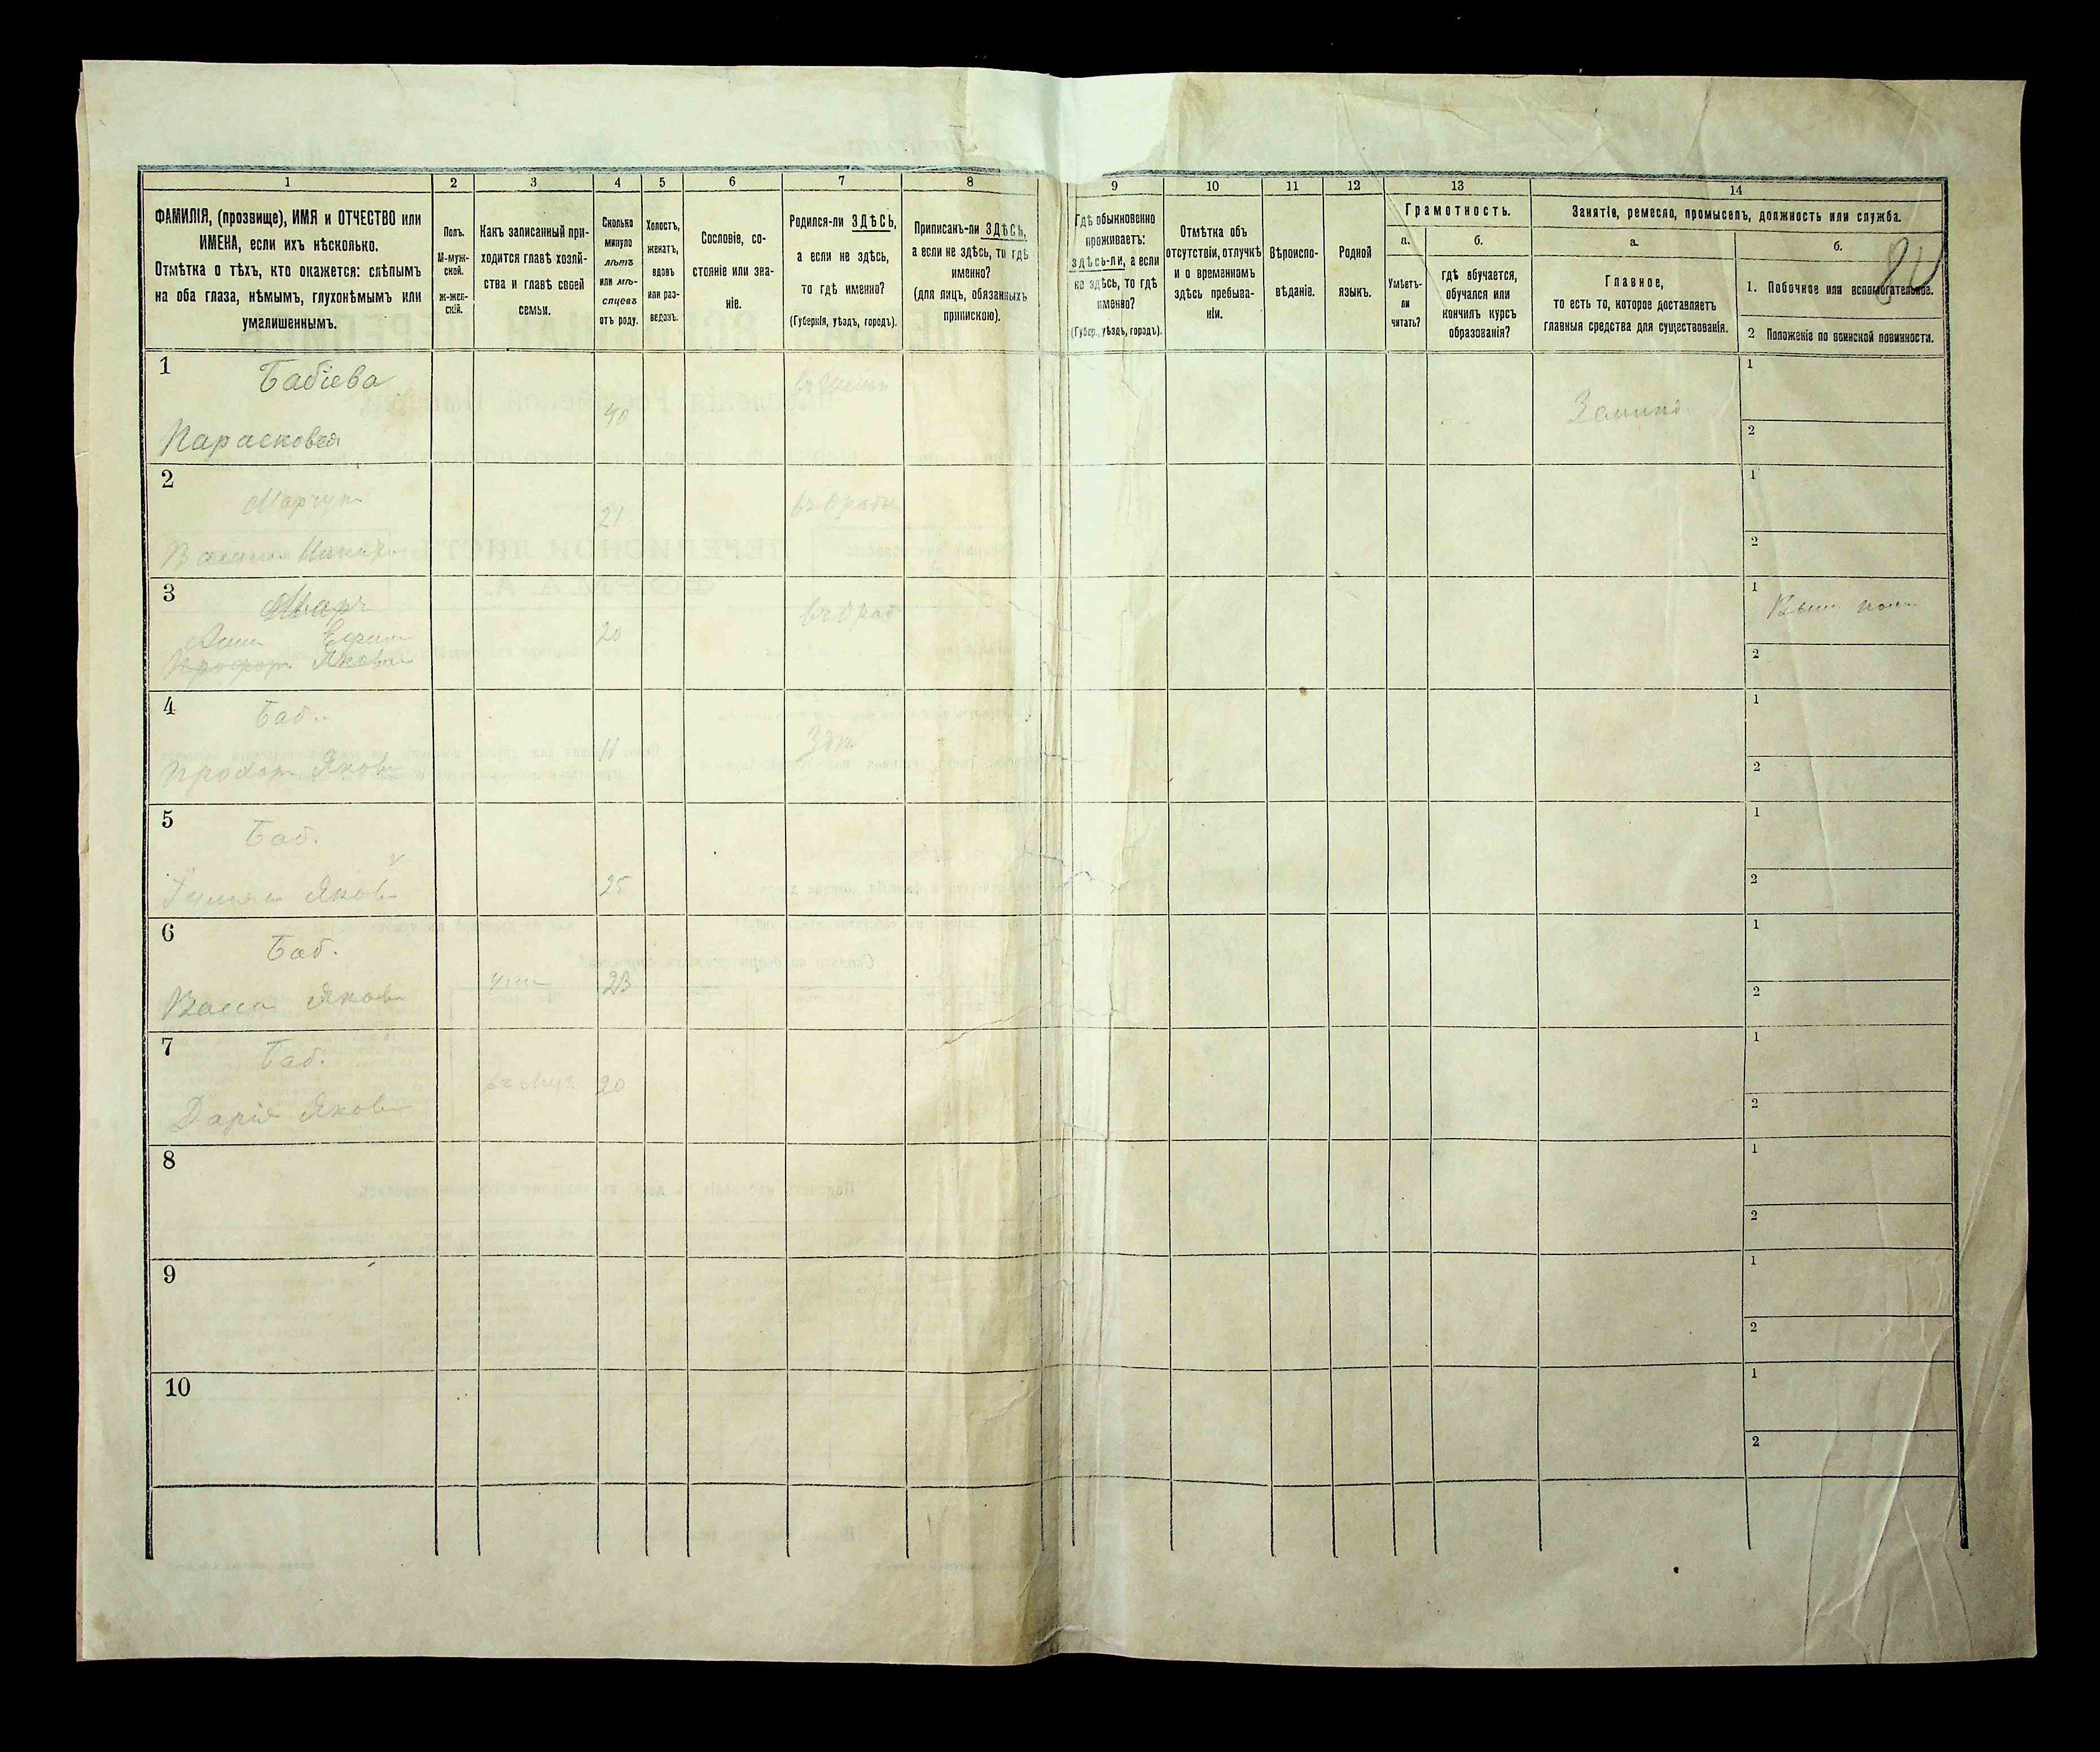 1 2 3 4 5 6 7 8 9 10 11 12 13 14
ФАМИЛІЯ, (прозвище), ИМЯ и ОТЧЕСТВО или
ИМЕНА, если ихъ нѣсколько.
Отмѣтка о тѣхъ, кто окажется: слѣпымъ
на оба глаза, нѣмымъ, глухонѣмымъ или
умалишеннымъ.
Полъ.
М-муж-
ской.
Ж-жен-
скій.
Какъ записанный при-
ходится главѣ хозяй-
ства и главѣ своей
семьи.
Сколько
минуло
лѣтъ
или мѣ-
сяцевъ
отъ роду.
Холостъ,
женатъ,
вдовъ
или раз-
веденъ.
Сословіе, со-
стояніе или зва-
ніе.
Родился-ли ЗДѢСЬ,
а если не здѣсь,
то гдѣ именно?
(Губернія, уѣздъ, городъ).
Приписанъ-ли ЗДѢСЬ,
а если не здѣсь, то гдѣ
именно?
(для лицъ, обязанныхъ
припискою).
Гдѣ обыкновенно
проживаетъ:
здѣсь-ли, а если
не здѣсь, то гдѣ
именно?
(Губер., уѣздъ, городъ).
Отмѣтка объ
отсутствіи, отлучкѣ
и о временномъ
здѣсь пребыва-
ніи.
Вѣроиспо-
вѣданіе.
Родной
языкъ.
Грамотность.
а.
Умѣетъ-
ли
читать?
б.
гдѣ обучается,
обучался или
кончилъ курсъ
образованія?
Занятіе, ремесло, промыселъ, должность или служба.
а.
Главное,
то есть то, которое доставляетъ
главныя средства для существованія.
б.
1. Побочное или вспомогательное.
2 Положеніе по воинской повинности.
1
Бабіева
40
Парасковея
1
2
2
Марчук
21
1
2
3
Марч
20
1
2
4
Баб.
Здп
11
Прохор Яков
1
2
5
Баб.
25
Яков
1
2
6
Баб.
23
Васса Яков
1
2
7
Баб.
20
Дарія Яков
1
2
8
1
2
9
1
2
10
1
2